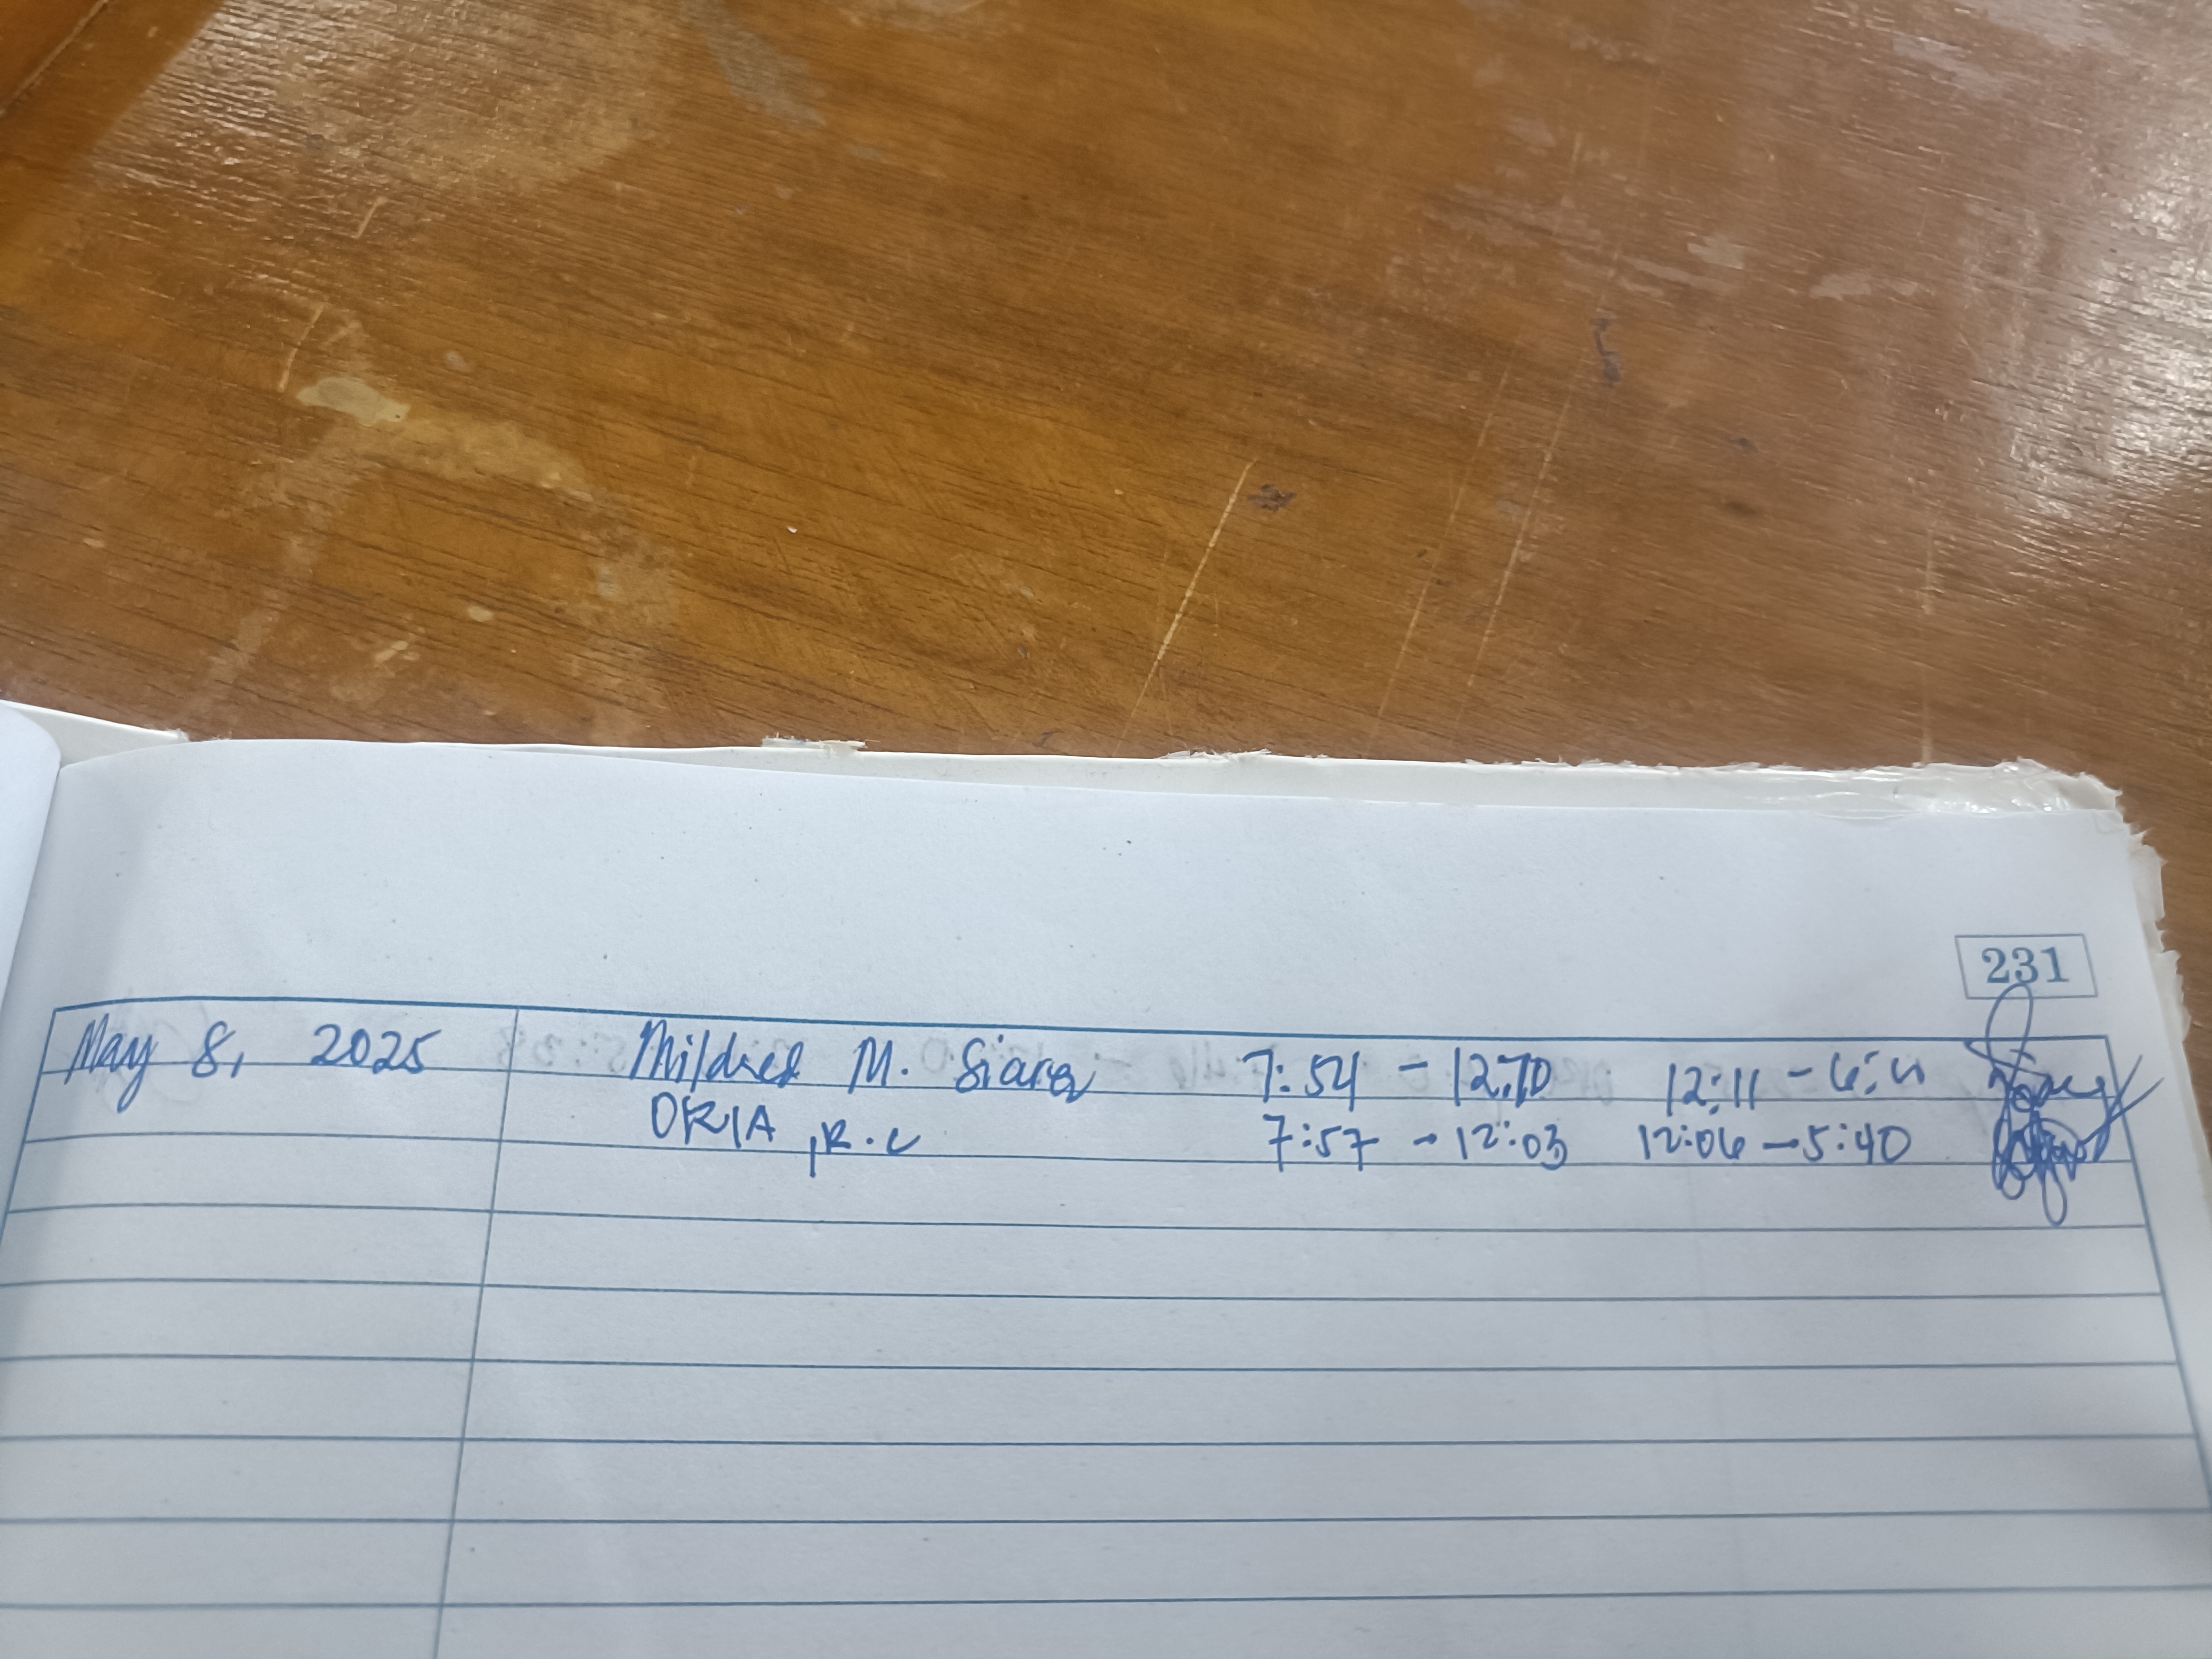 231
May 8, 2025 Mildred M. 7:54 - 12:10 12:11 -
ORIA, R.C 7:57 - 12:03 12:06 - 5:40